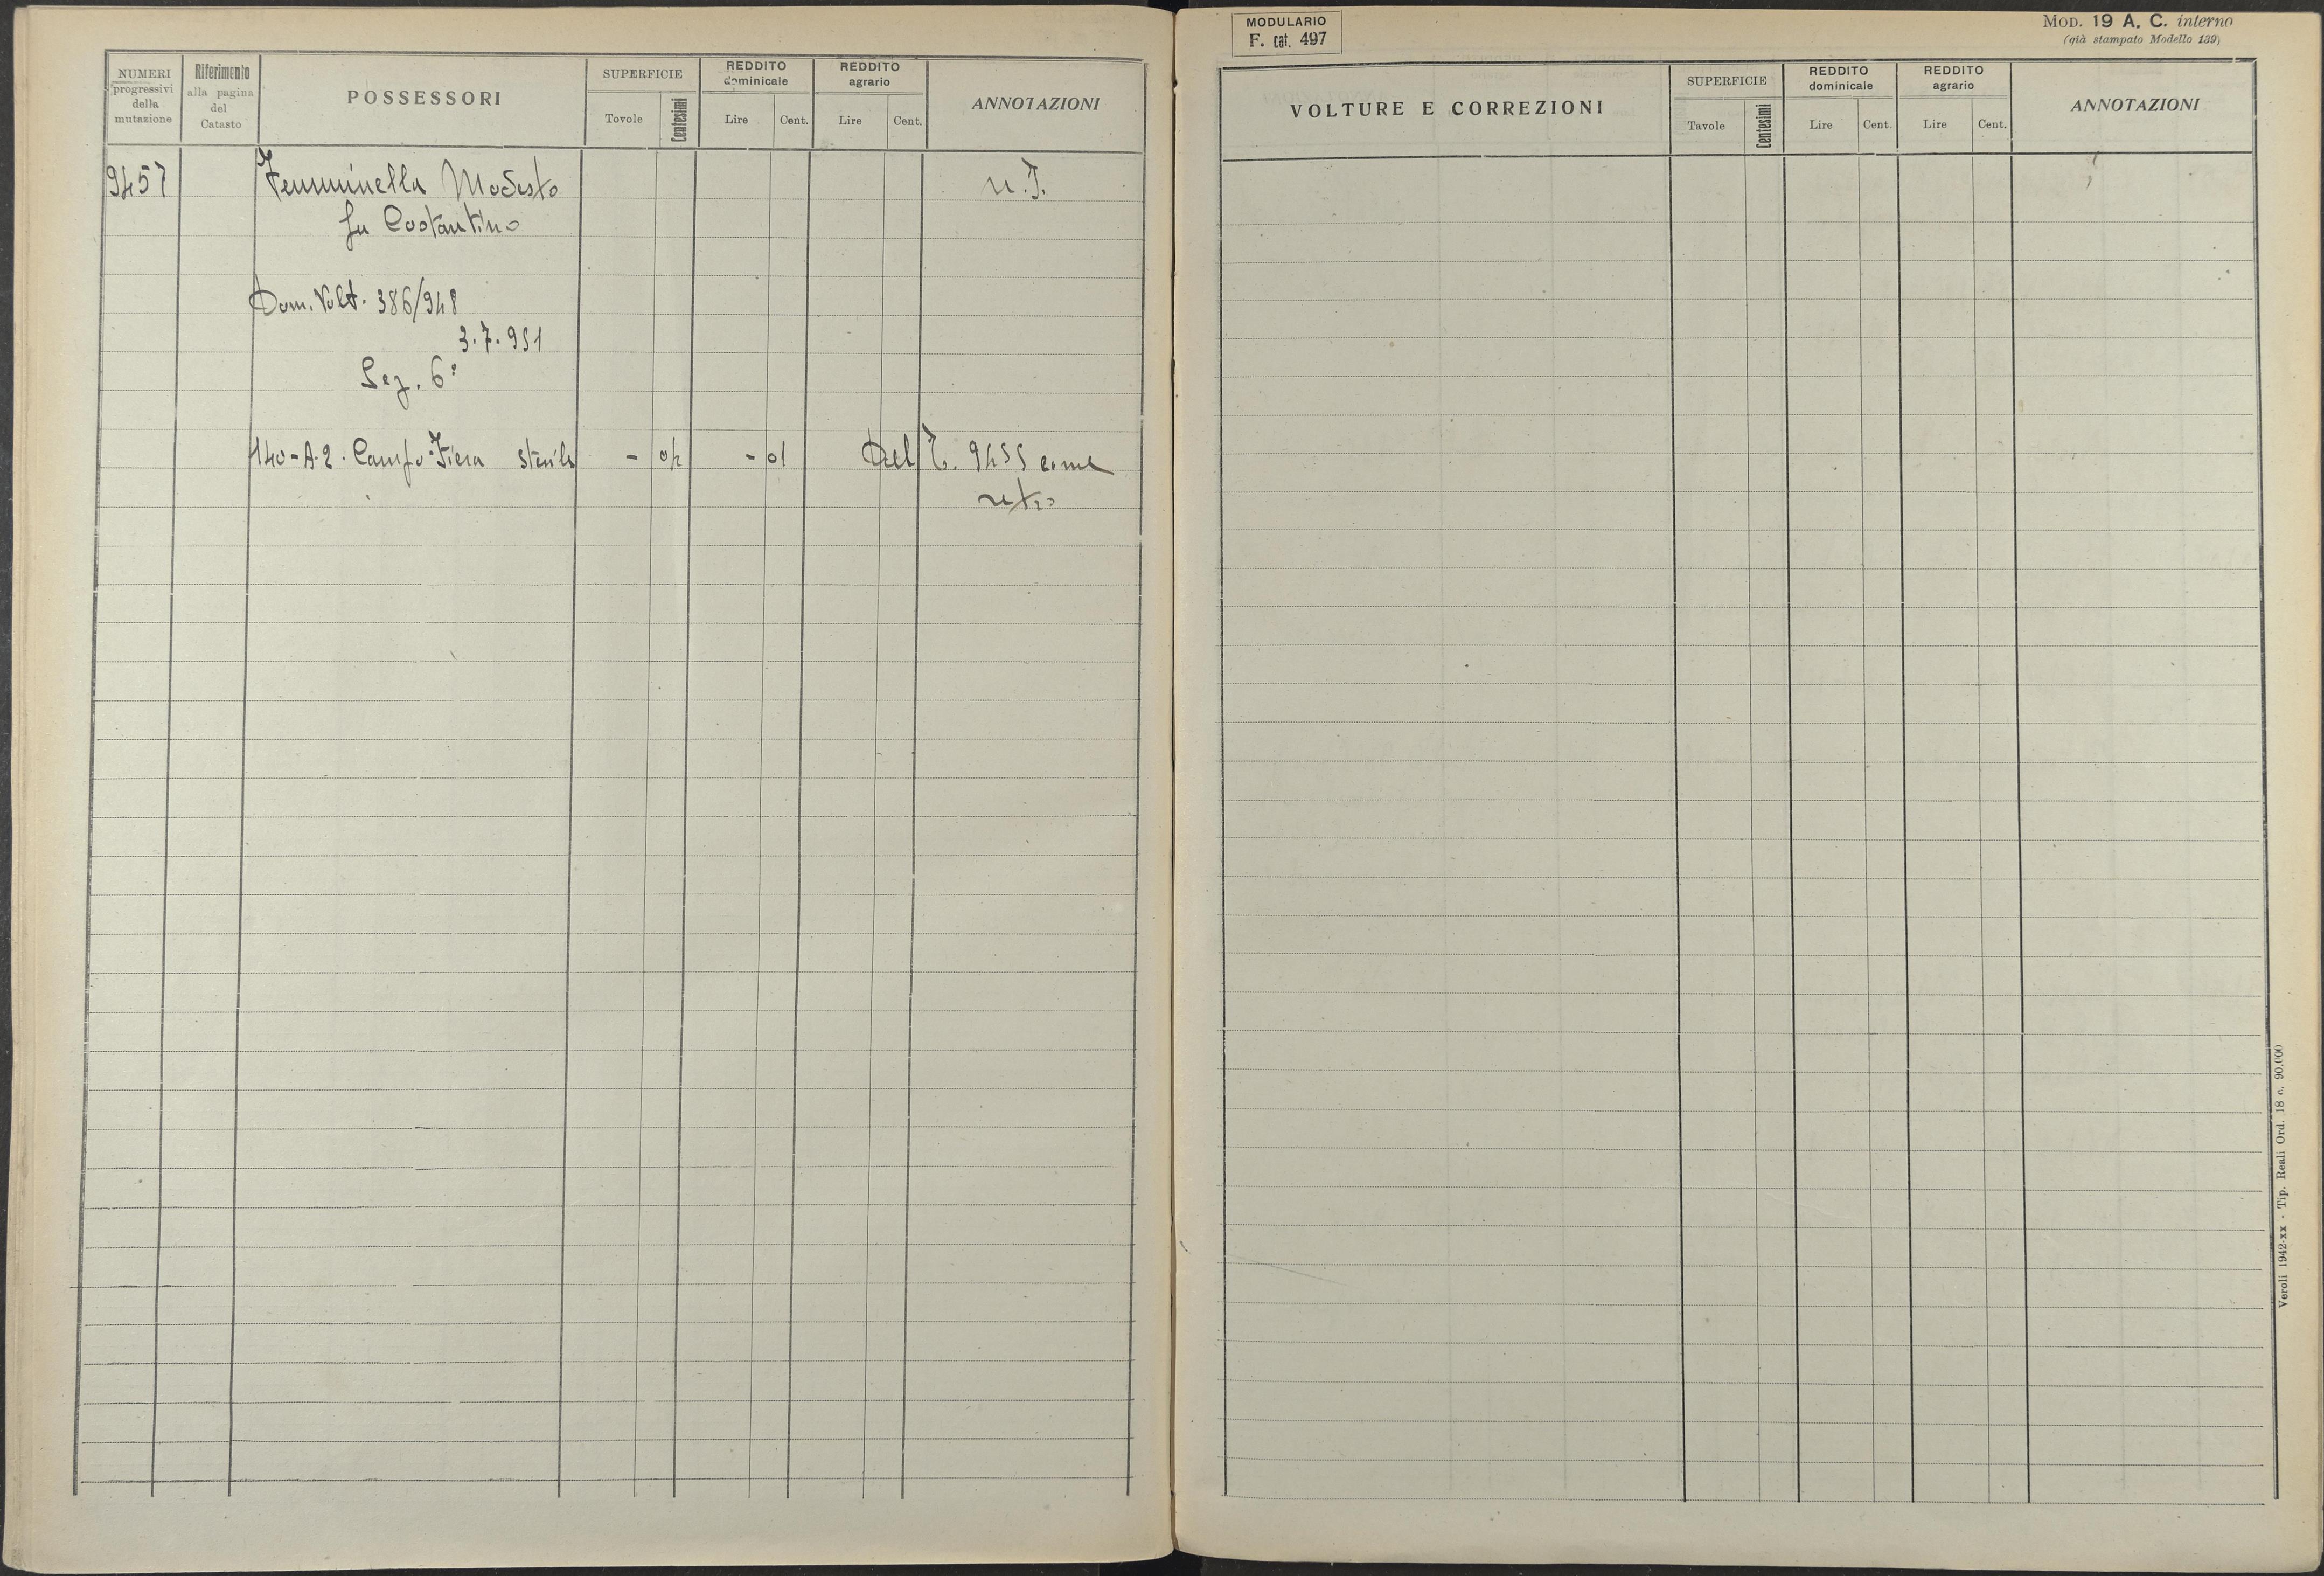 NUMERI progressivi della mutazione
Riferimento alla pagina del Catasto
POSSESSORI
SUPERFICIE
Tovole
Centesimi
REDDITO dominicale
Lire
Cent.
REDDITO agrario
Lire
Cent.
ANNOTAZIONI
9457 Femminella Modesto n. T.
fu Costantino
Dom. Volt. 386/948
3.7.951
Sez. 6ª
140-A-2. Campo Fiera sterile - 02 - 01 Dal T. 9455 come
retro
MODULARIO
F. cat. 497
MOD. 19 A. C. interno
(già stampato Modello 139)
VOLTURE E CORREZIONI
SUPERFICIE
Tavole
Centesimi
REDDITO dominicale
Lire
Cent.
REDDITO agrario
Lire
Cent.
ANNOTAZIONI
Veroli 1942-XX - Tip. Reali Ord. 18 n. 90.000